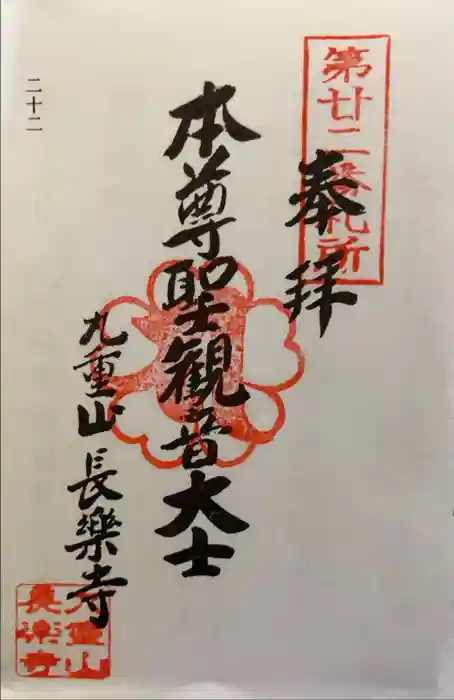 第廿二番札所
奉拝
本尊聖観音大士
九重山 長樂寺
二十二
九重山
長楽寺